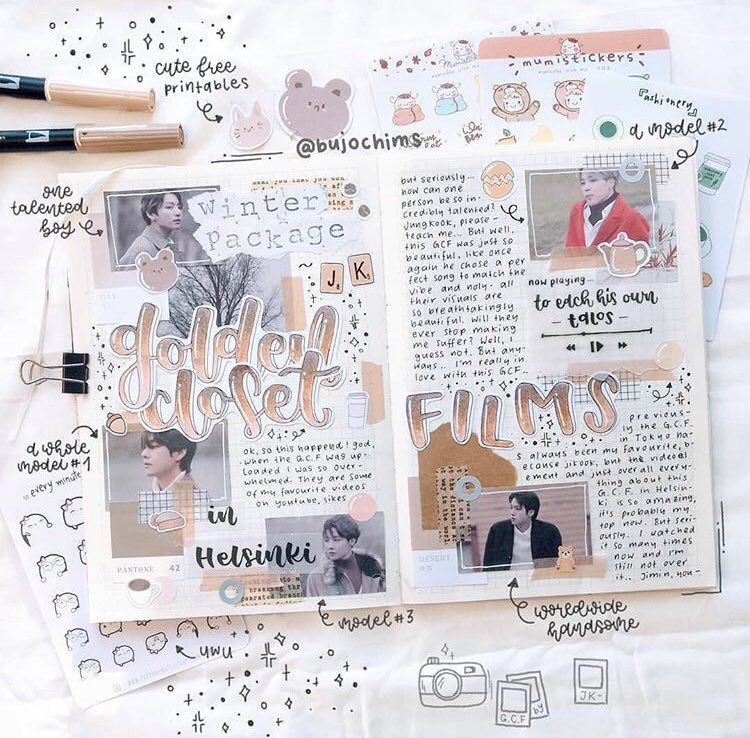 cute free
printables
@bujochims
mumistickers
Fashionery
a model #2
one
talented
boy
Winter
Package
~ J K
golden
closet
a whole
model #1
every minute
ok, so this happend! god,
when the G.C.F was up-
loaded I was so over-
whelmed. They are some
of my favourite videos
on youtube, sikes
in
Helsinki
PANTONE 42
model #3
uwu
but seriously...
how can one
person be so in
credibly talented?
Jungkook, please -
teach me... But well,
this GCF was just so
beautiful. like once
again he chose a per
fect song to match the
vibe and ndly- all
their visuals are
so breathtakingly
beautiful. Will they
ever stop making
me suffer? Well, I
guess not. But any-
ways... I'm really in
love with this GCF..
now playing...
to each his own
- talos -
FILMS
previous-
ly the G.C.F.
in Tokyo ha-
s always been my favourite, b-
ecause jikook, but the videoel
ement and just over all every-
thing about this
G.C.F. in Helsin-
ki is so amazing,
it's probably my
top now. But seri-
ously. I watched
it so many times
now and i'm
still not over
it.. Jimin, you-
DESERT
worldwide
handsome
G.C.F
by
JK-